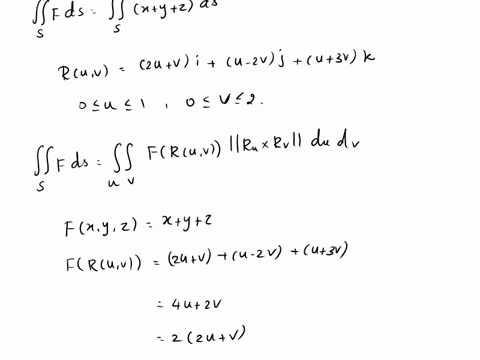 ∬_S F ds = ∬_S (x+y+z) ds
R(u,v) = (2u+v) i + (u-2v) j + (u+3v) k
0 ≤ u ≤ 1 , 0 ≤ v ≤ 2.
∬_S F ds = ∫_u ∫_v F(R(u,v)) ||Ru × Rv|| du dv
F(x,y,z) = x+y+z
F(R(u,v)) = (2u+v) + (u-2v) + (u+3v)
= 4u+2v
= 2(2u+v)